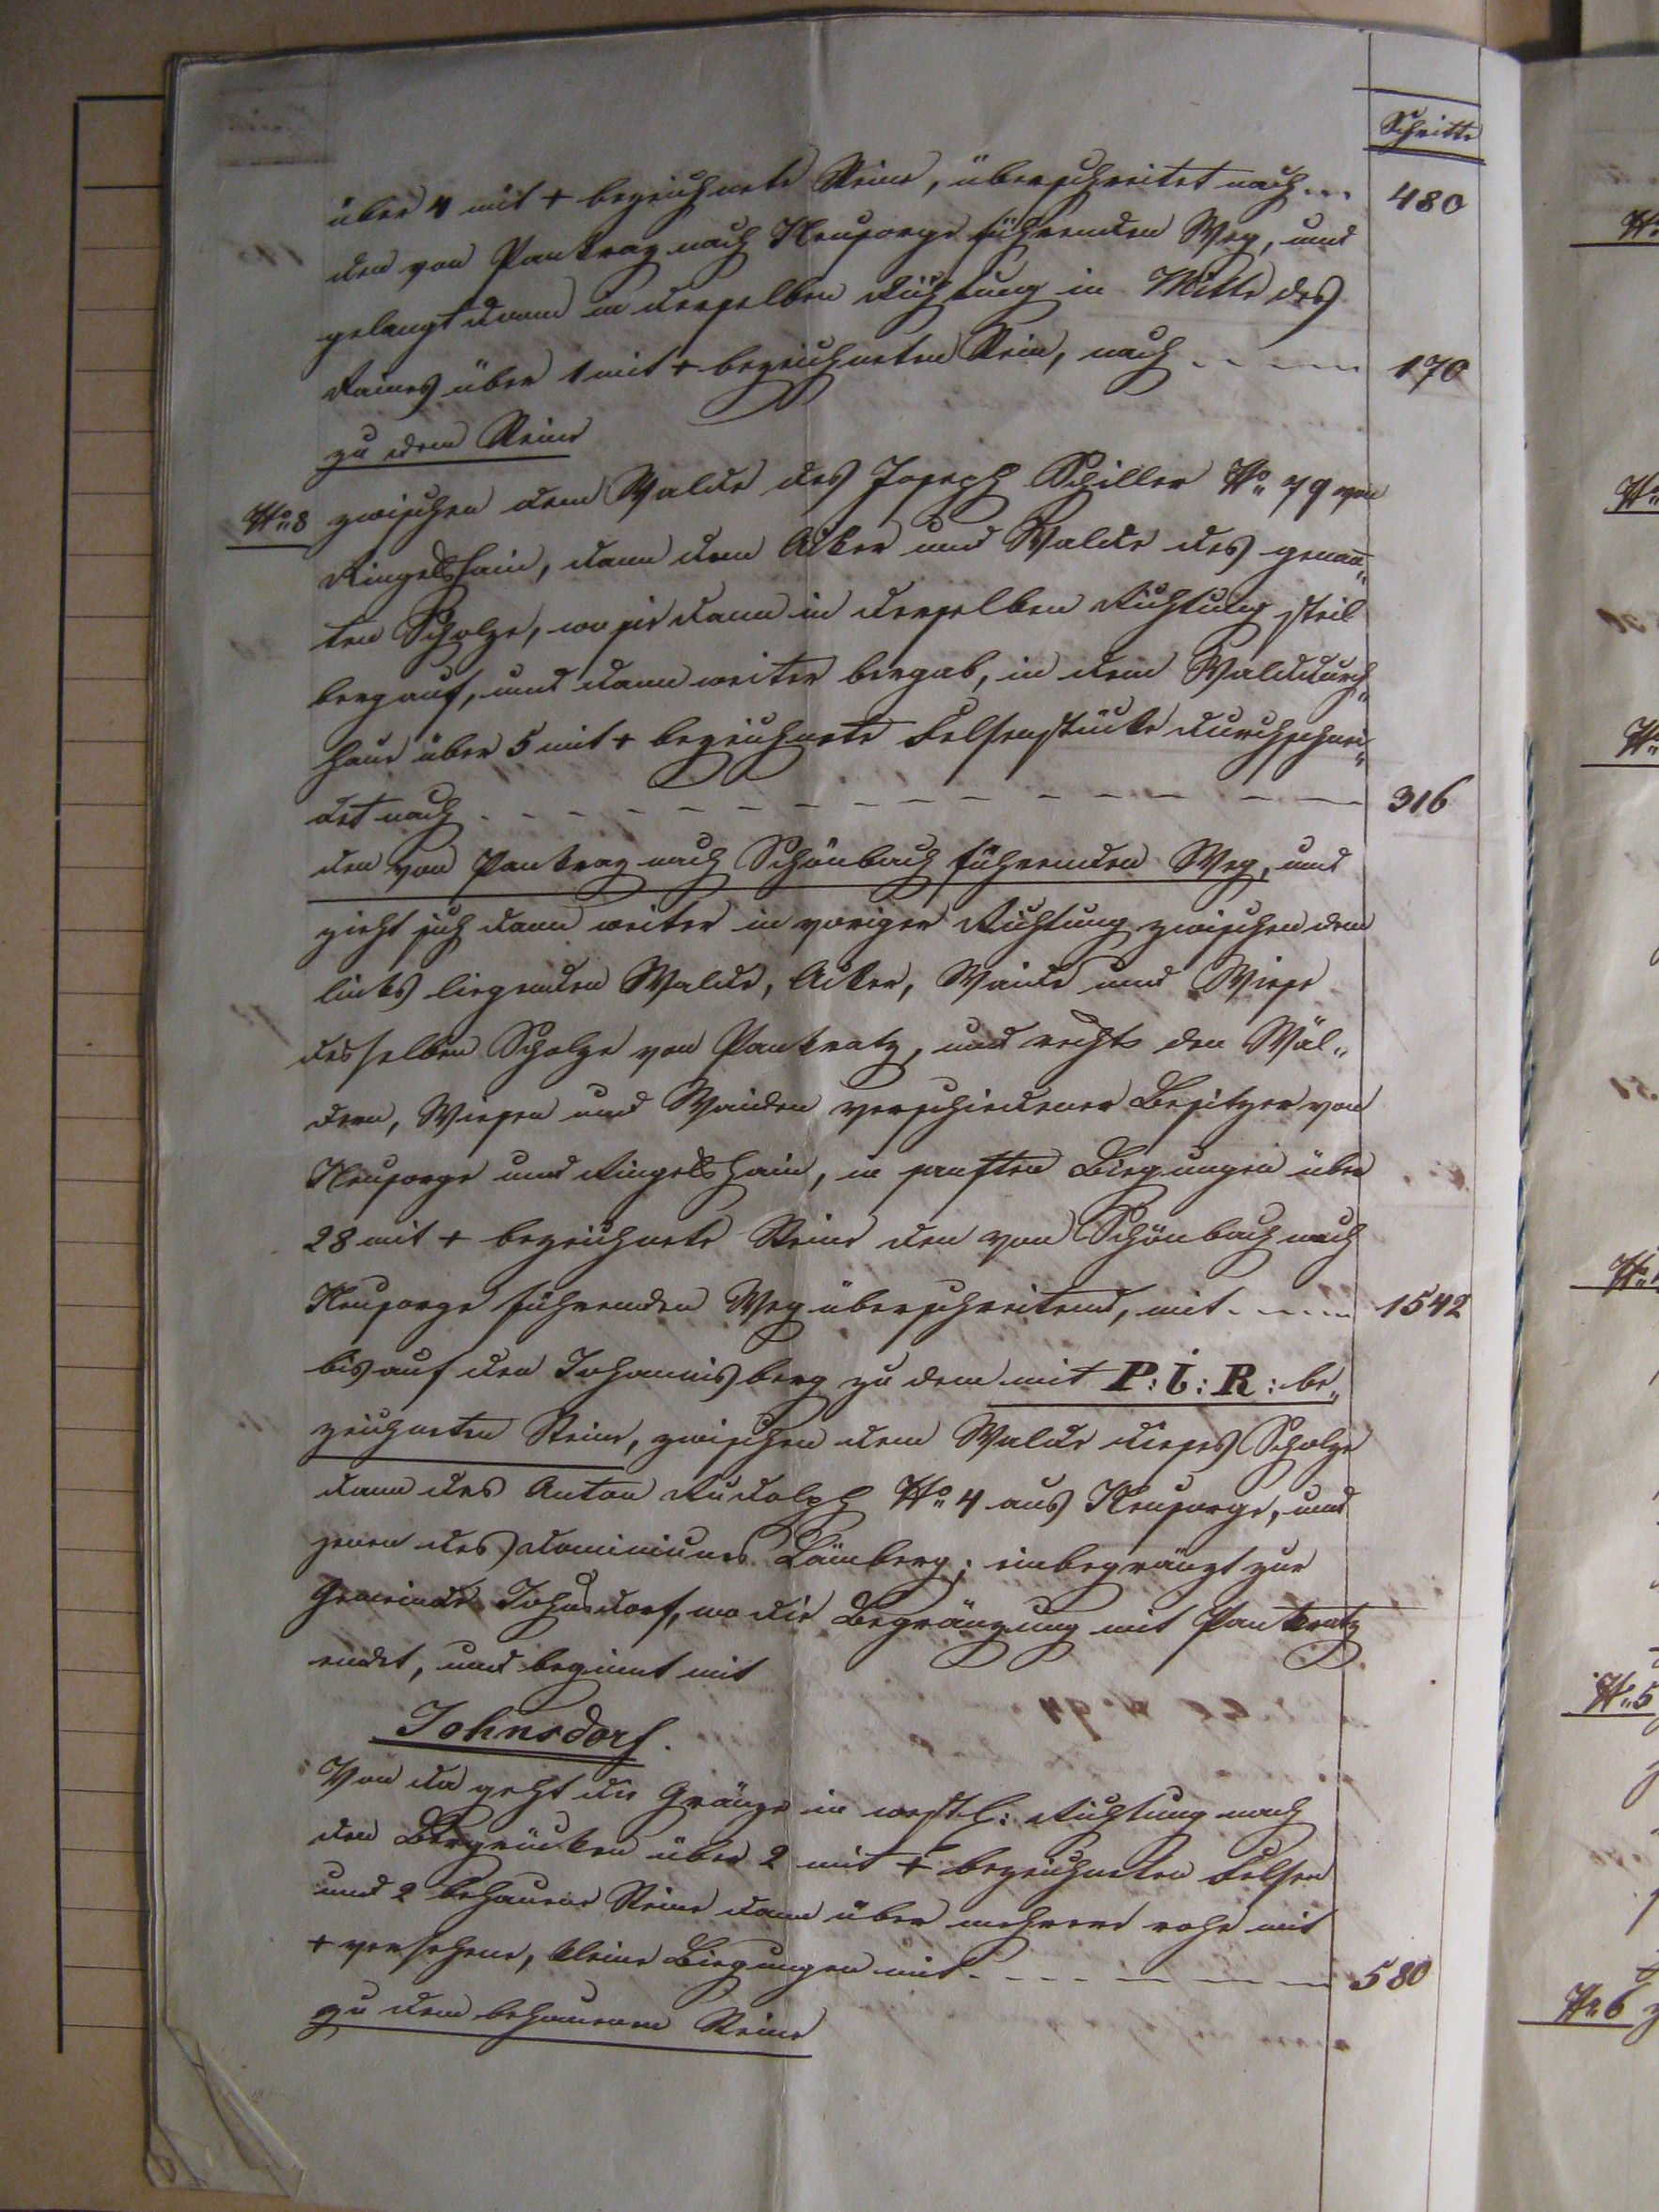 Schritte
über 4 mit + bezeichnete Steine, überschreitet nach 480
den von Pankraz nach Neusorge führenden Weg, und
gelangt dann in derselben Richtung in Mitte des
Raines über 1 mit + bezeichneten Stein, nach 170
zu dem Steine
No 8 zwischen dem Walde des Joseph Schiller No 79 von
Ringelshain, dann dem Acker und Walde des genan„
ten Scholze, wo sie dann in derselben Richtung steil
bergauf, und dann weiter bergab, in dem Walddurch„
haue über 5 mit + bezeichnete Felsenstücke durchschnei„
det nach 316
den von Pankraz nach Schönbach führenden Weg, und
zieht sich dann weiter in voriger Richtung zwischen dem
links liegenden Walde, Acker, Waide und Wiese
desselben Scholze von Pankratz, und rechts den Wäl„
dern, Wiesen und Waiden verschiedener Besitzer von
Neusorge und Ringelshain, in sanften Biegungen über
28 mit + bezeichnete Steine den von Schönbach nach
Neusorge führenden Weg überschreitend, mit 1542
bis auf den Johannisberg zu dem mit P: L: R: be„
zeichneten Steine, zwischen dem Walde dieses Scholze
dann des Anton Rudolph No 4 aus Neusorge, und
jenen des Dominiums Lämberg; einbegränzt zur
Gemeinde Johnsdorf, wo die Begränzung mit Pankratz
endet, und beginnt mit
Johnsdorf.
Von da geht die Gränze in westl: Richtung nach
den Bergrücken über 2 mit + bezeichneten Felsen
und 2 behauene Steine dann über mehrere rohe mit
+ versehene, kleine Biegungen mit 580
zu dem behauenen Steine
No 5
No 6